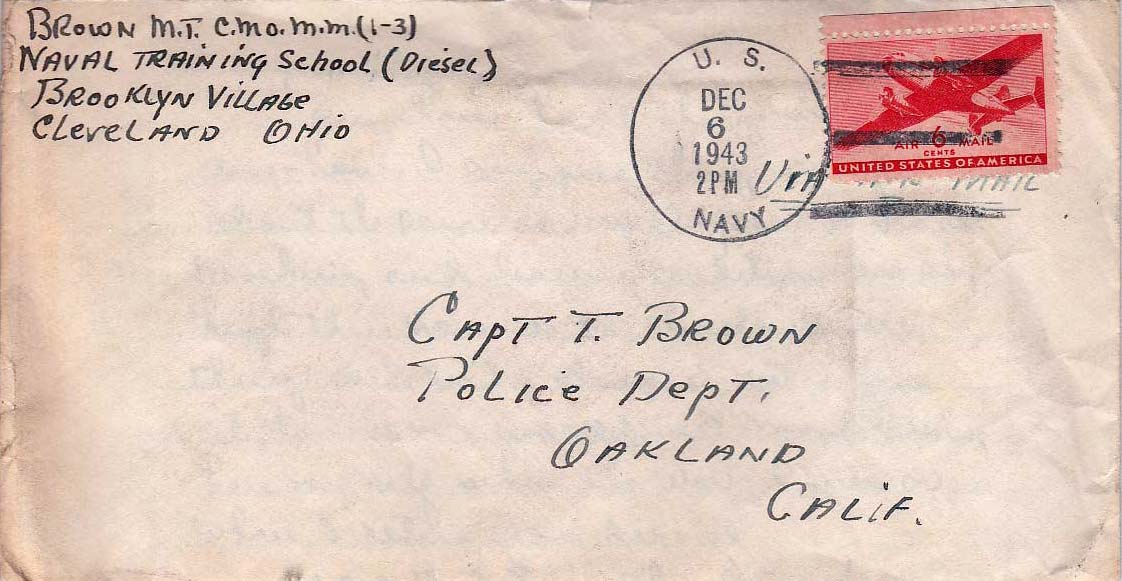 BROWN M.T. C.Mo.M.M.(1-3)
NAVAL TRAINING School (Diesel)
BROOKLYN VILLAGE
CLEVELAND OHIO
U. S.
DEC
6
1943
2PM
NAVY
AIR 6 MAIL
CENTS
UNITED STATES OF AMERICA
VIA AIR MAIL
CAPT T. BROWN
POLICE DEPT.
OAKLAND
CALIF.